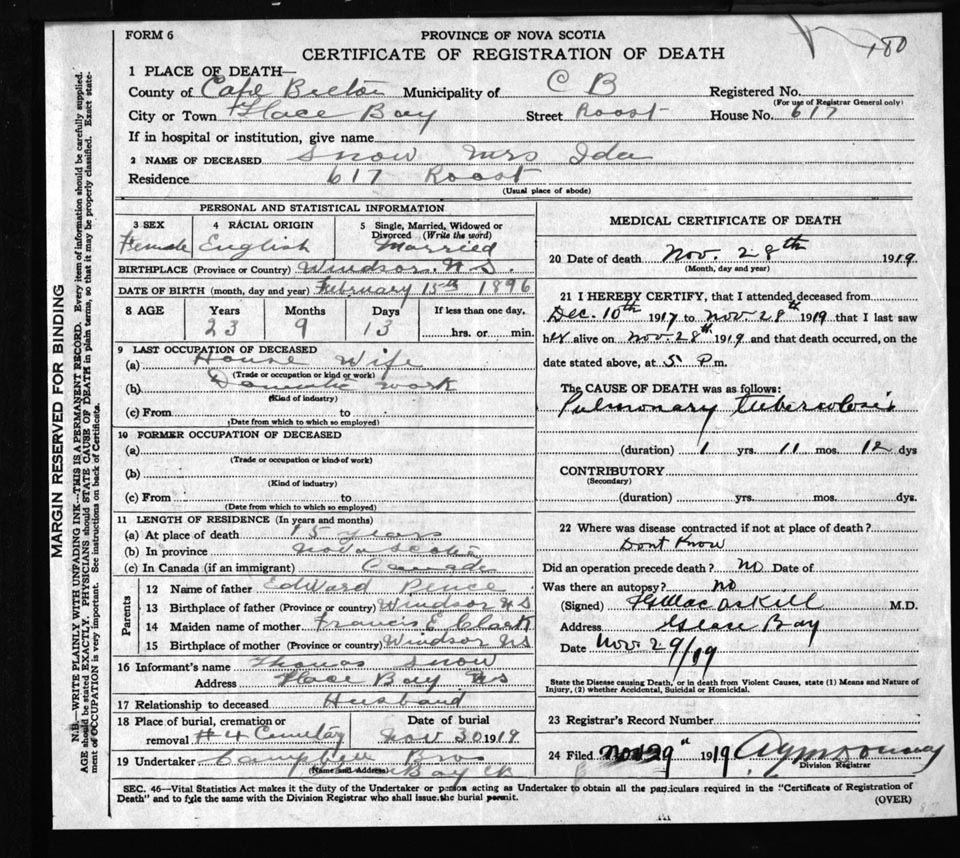 FORM 6
PROVINCE OF NOVA SCOTIA
180
CERTIFICATE OF REGISTRATION OF DEATH
1 PLACE OF DEATH—
County of Cape Breton Municipality of C B Registered No.
(For use of Registrar General only)
City or Town Glace Bay Street Roost House No. 617
If in hospital or institution, give name
2 NAME OF DECEASED Snow Mrs Ida
Residence 617 Roost
(Usual place of abode)
PERSONAL AND STATISTICAL INFORMATION
3 SEX 4 RACIAL ORIGIN 5 Single, Married, Widowed or Divorced (Write the word)
Female English Married
BIRTHPLACE (Province or Country) Windsor. N S.
DATE OF BIRTH (month, day and year) February 15th 1896
8 AGE Years Months Days If less than one day,
23 9 13 hrs. or min.
9 LAST OCCUPATION OF DECEASED
(a) House Wife
(Trade or occupation or kind of work)
(b) Domestic work
(Kind of industry)
(c) From to
(Date from which to which so employed)
10 FORMER OCCUPATION OF DECEASED
(a)
(Trade or occupation or kind of work)
(b)
(Kind of industry)
(c) From to
(Date from which to which so employed)
11 LENGTH OF RESIDENCE (In years and months)
(a) At place of death 15 years
(b) In province Nova Scotia
(c) In Canada (if an immigrant) Canada
Parents
12 Name of father Edward
13 Birthplace of father (Province or country) Windsor N S
14 Maiden name of mother Francis E Clark
15 Birthplace of mother (Province or country) Windsor NS
16 Informant's name Thomas Snow
Address Glace Bay NS
17 Relationship to deceased Husband
18 Place of burial, cremation or Date of burial
removal #4 Cemetary Nov 30 1919
19 Undertaker Campbell Bros
(Name and Address) Bay
MEDICAL CERTIFICATE OF DEATH
20 Date of death Nov. 28th 1919
(Month, day and year)
21 I HEREBY CERTIFY, that I attended deceased from
Dec. 10th 1917 to Nov. 28th 1919 that I last saw
her alive on Nov. 28th 1919 and that death occurred, on the
date stated above, at 5 P.m.
The CAUSE OF DEATH was as follows:
Pulmonary Tuberculosis
(duration) 1 yrs. 11 mos. 12 dys
CONTRIBUTORY
(Secondary)
(duration) yrs. mos. dys.
22 Where was disease contracted if not at place of death?
Dont Know
Did an operation precede death? No Date of
Was there an autopsy? No
(Signed) MacAskill M.D.
Address Glace Bay
Date Nov 29/19
State the Disease causing Death, or in death from Violent Causes, state (1) Means and Nature of
Injury, (2) whether Accidental, Suicidal or Homicidal.
23 Registrar's Record Number
24 Filed Nov 29" 1919
Division Registrar
SEC. 46—Vital Statistics Act makes it the duty of the Undertaker or person acting as Undertaker to obtain all the particulars required in the "Certificate of Registration of
Death" and to fyle the same with the Division Registrar who shall issue the burial permit.
(OVER)
MARGIN RESERVED FOR BINDING
N.B.—WRITE PLAINLY WITH UNFADING INK—THIS IS A PERMANENT RECORD. Every item of information should be carefully supplied.
AGE should be stated EXACTLY. PHYSICIANS should STATE CAUSE OF DEATH in plain terms, so that it may be properly classified. Exact state-
ment of OCCUPATION is very important. See instructions on back of Certificate.